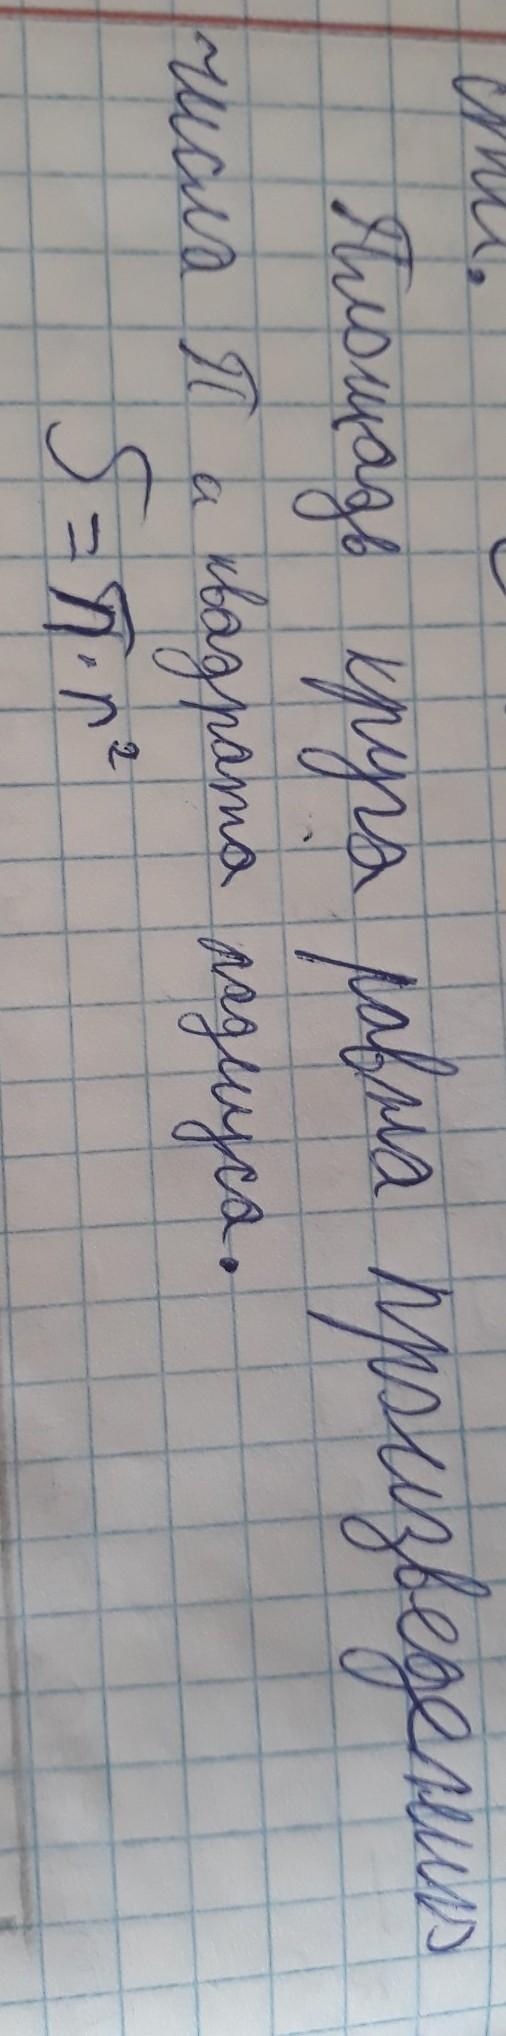 сти.
Площадь круга равна произведению
числа П и квадрата радиуса.
S = π · r²